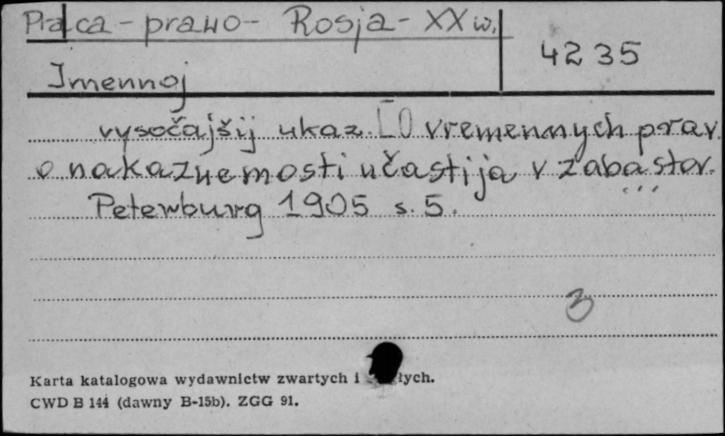 Praca - prawo - Rosja - XX w.
4235
Imennoj
vysočajšij ukaz. [O vremennych prav.
o nakazuemosti učastija v zabastov.
...
Peterburg 1905 s. 5.
3
Karta katalogowa wydawnictw zwartych i
CWD B 144 (dawny B-15b). ZGG 91.